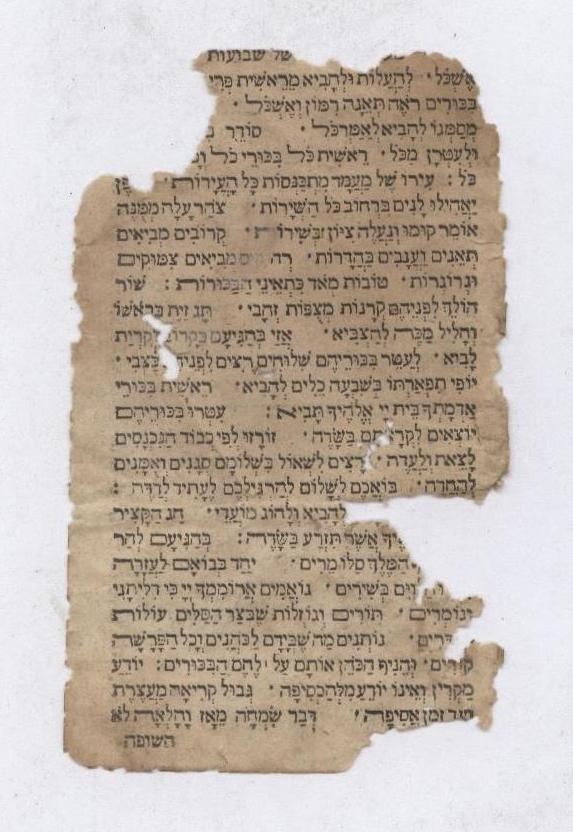 של שבועות
אֶשְׁכֹּל׳ לְהַעֲלוֹת וּלְהָבִיא מֵרֵאשִׁית פְּרִי
בִּכּוּרִים רֹאֶה תְּאֵנָה רִמּוֹן וְאֶשְׁכֹּל׳
מְסַמְּנוֹ לְהָבִיא לַאֲמַרְכֹּל׳ סוֹדֵר
וּלְעַטְּרָן מִכֹּל׳ רֵאשִׁית כָּל בִּכּוּרֵי כֹל
כֹּל: עִירוֹ שֶׁל מַעֲמָד מִתְכַּנְּסוֹת כָּל הָעֲיָרוֹת׳
יַאֲהִילוּ לָנִים בִּרְחוֹב כֹּל הַשְּׁיָרוֹת׳ צֹהַר עָלָה מְמֻנֶּה
אוֹמֵר קוּמוּ וְנַעֲלֶה צִיּוֹן בְּשִׁירוֹת׳ קְרוֹבִים מְבִיאִים
תְּאֵנִים וַעֲנָבִים בְּהָדָרוֹת׳ מְבִיאִים צִמּוּקִים
וּגְרוֹגְרוֹת׳ טוֹבוֹת מְאֹד כִּתְאֵינֵי הַבַּכּוּרוֹת: שׁוֹר
הוֹלֵךְ לִפְנֵיהֶם קַרְנוֹת מְצֻפּוֹת זְהָבִי׳ תָּג זַיִת בְּרֹאשׁוֹ
וְחָלִיל מַכֶּה לְהַצְבִּיא׳ אֲזַי בְּהַגִּיעָם לְקִרְיַת
לָבִיא׳ לְעַטֵּר בִּכּוּרֵיהֶם שְׁלוּחִים רָצִים לִפְנֵי בַּצְּבִי׳
יוֹפִי תִפְאַרְתּוֹ בְּשִׁבְעָה כֵלִים לְהָבִיא׳ רֵאשִׁית בִּכּוּרֵי
אַדְמָתְךָ בֵּית יְיָ אֱלֹהֶיךָ תָּבִיא: עִטְּרוּ בִּכּוּרֵיהֶם
יוֹצְאִים לִקְרָאתָם בְּשָׂרָה׳ זוֹרְזוּ לְפִי כְבוֹד הַנִּכְנָסִים
לָצֵאת וְלַעֲדָה׳ רָצִים לִשְׁאוֹל בִּשְׁלוֹמָם סְגָנִים וְאֻמָּנִים
לְהַחְדָּה׳ בּוֹאֲכֶם לְשָׁלוֹם לְהַרְגִּילְכֶם לֶעָתִיד לִרְדֹּה:
לְהָבִיא וְלָחוֹג מוֹעֲדֵי׳ חַג הַקָּצִיר
אֲשֶׁר תִּזְרַע בַּשָּׂדֶה: בְּהַגִּיעָם לְהַר
הַמֶּלֶךְ סַלּוֹ מֵרִים׳ יַחַד בְּבוֹאָם לָעֲזָרָה
בְּשִׁירִים׳ נוֹאֲמִים אֲרוֹמִמְךָ יְיָ כִּי דִלִּיתָנִי
וְגוֹמְרִים׳ תּוֹרִים וְגוֹזָלוֹת שֶׁבְּצַד הַסַּלִּים עוֹלוֹת
נוֹתְנִים מַה שֶּׁבְּיָדָם לַכֹּהֲנִים וְכָל הַפָּרָשָׁה
קוֹרִים׳ וְהֵנִיף הַכֹּהֵן אוֹתָם עַל לֶחֶם הַבִּכּוּרִים: יוֹדֵעַ
מַקְרִין וְאֵינוֹ יוֹדֵעַ מִלְּהַכְסִיפָה׳ גְּבוּל קְרִיאָה מֵעֲצֶרֶת
זְמַן אֲסִיפָה׳ דְּבַר שִׂמְחָה מֵאָז וָהָלְאָה לֹא
חשופה